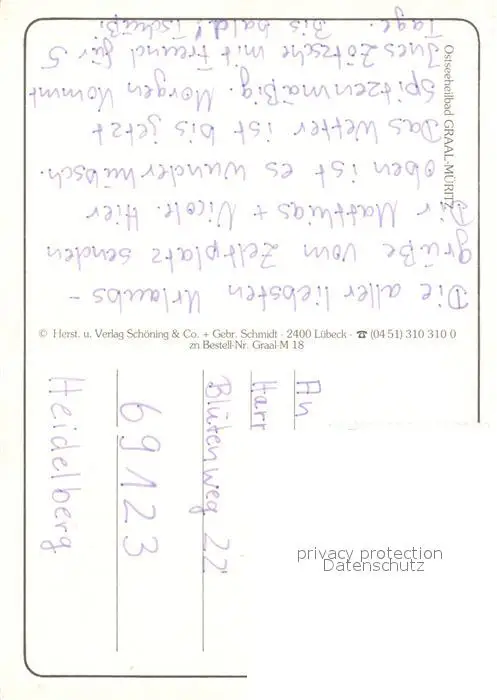 Ostseeheilbad GRAAL-MÜRITZ
Die aller liebsten Urlaubs-
grüße vom Zeltplatz senden
Dir Matthias + Nicole. Hier
oben ist es wunderhübsch.
Das Wetter ist bis jetzt
Spitzenmäßig. Morgen kommt
Ines Zötzsche mit Freund für 5
Tage. Bis bald! Tschüß!
© Herst. u. Verlag Schöning & Co. + Gebr. Schmidt · 2400 Lübeck · ☎ (04 51) 310 310 0
zn Bestell-Nr. Graal-M 18
An
Harr
Blütenweg 22
69123
Heidelberg
privacy protection
Datenschutz